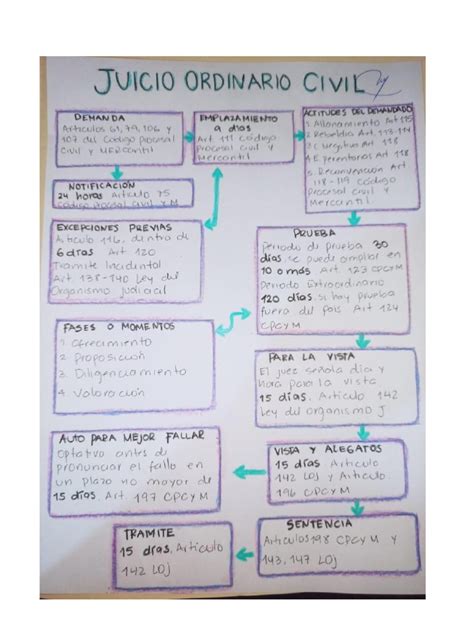 JUICIO ORDINARIO CIVIL
DEMANDA
Artículos 61, 79, 106 y
107 del Código Procesal
Civil y MERCANTIL
EMPLAZAMIENTO
9 días
Art 111 Código
Procesal Civil y
Mercantil
ACTITUDES DEL DEMANDADO
1. Allanamiento Art 115
2. Rebeldía Art. 113-114
3. C Negativa Art 118
4. E Perentorias Art 118
5. Reconvención Art
118 - 119 Código
Procesal Civil y
Mercantil
NOTIFICACIÓN
24 horas Artículo 75
Código Procesal Civil y M
EXCEPCIONES PREVIAS
Artículo 116. dentro de
6 días Art 120
Tramite Incidental
Art 138-140 Ley del
Organismo Judicial
PRUEBA
Periodo de prueba 30
días, se puede ampliar en
10 o más Art 123 CPCyM
Periodo Extraordinario
120 días. si hay prueba
fuera del país Art 124
CPCyM
FASES O MOMENTOS
1. Ofrecimiento
2. Proposición
3. Diligenciamiento
4. Valoración
PARA LA VISTA
El juez señala día y
hora para la vista
15 días. Artículo 142
Ley del organismo J
AUTO PARA MEJOR FALLAR
Optativo antes de
pronunciar el fallo en
un plazo no mayor de
15 días. Art 197 CPCyM
VISTA Y ALEGATOS
15 días Artículo
142 LOJ y Artículo
196 CPCyM
SENTENCIA
Artículos 198 CPCyM y
143, 147 LOJ
TRAMITE
15 días. Artículo
142 LOJ